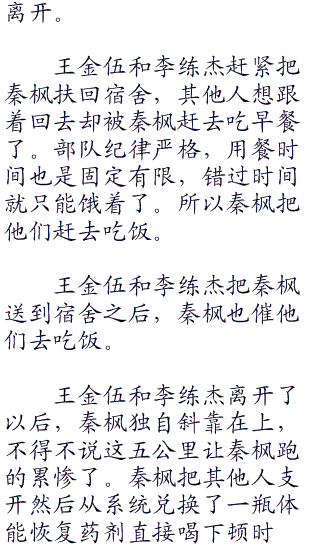 离开。
王金伍和李练杰赶紧把
秦枫扶回宿舍，其他人想跟
着回去却被秦枫赶去吃早餐
了。部队纪律严格，用餐时
间也是固定有限，错过时间
就只能饿着了。所以秦枫把
他们赶去吃饭。
王金伍和李练杰把秦枫
送到宿舍之后，秦枫也催他
们去吃饭。
王金伍和李练杰离开了
以后，秦枫独自斜靠在上，
不得不说这五公里让秦枫跑
的累惨了。秦枫把其他人支
开然后从系统兑换了一瓶体
能恢复药剂直接喝下顿时